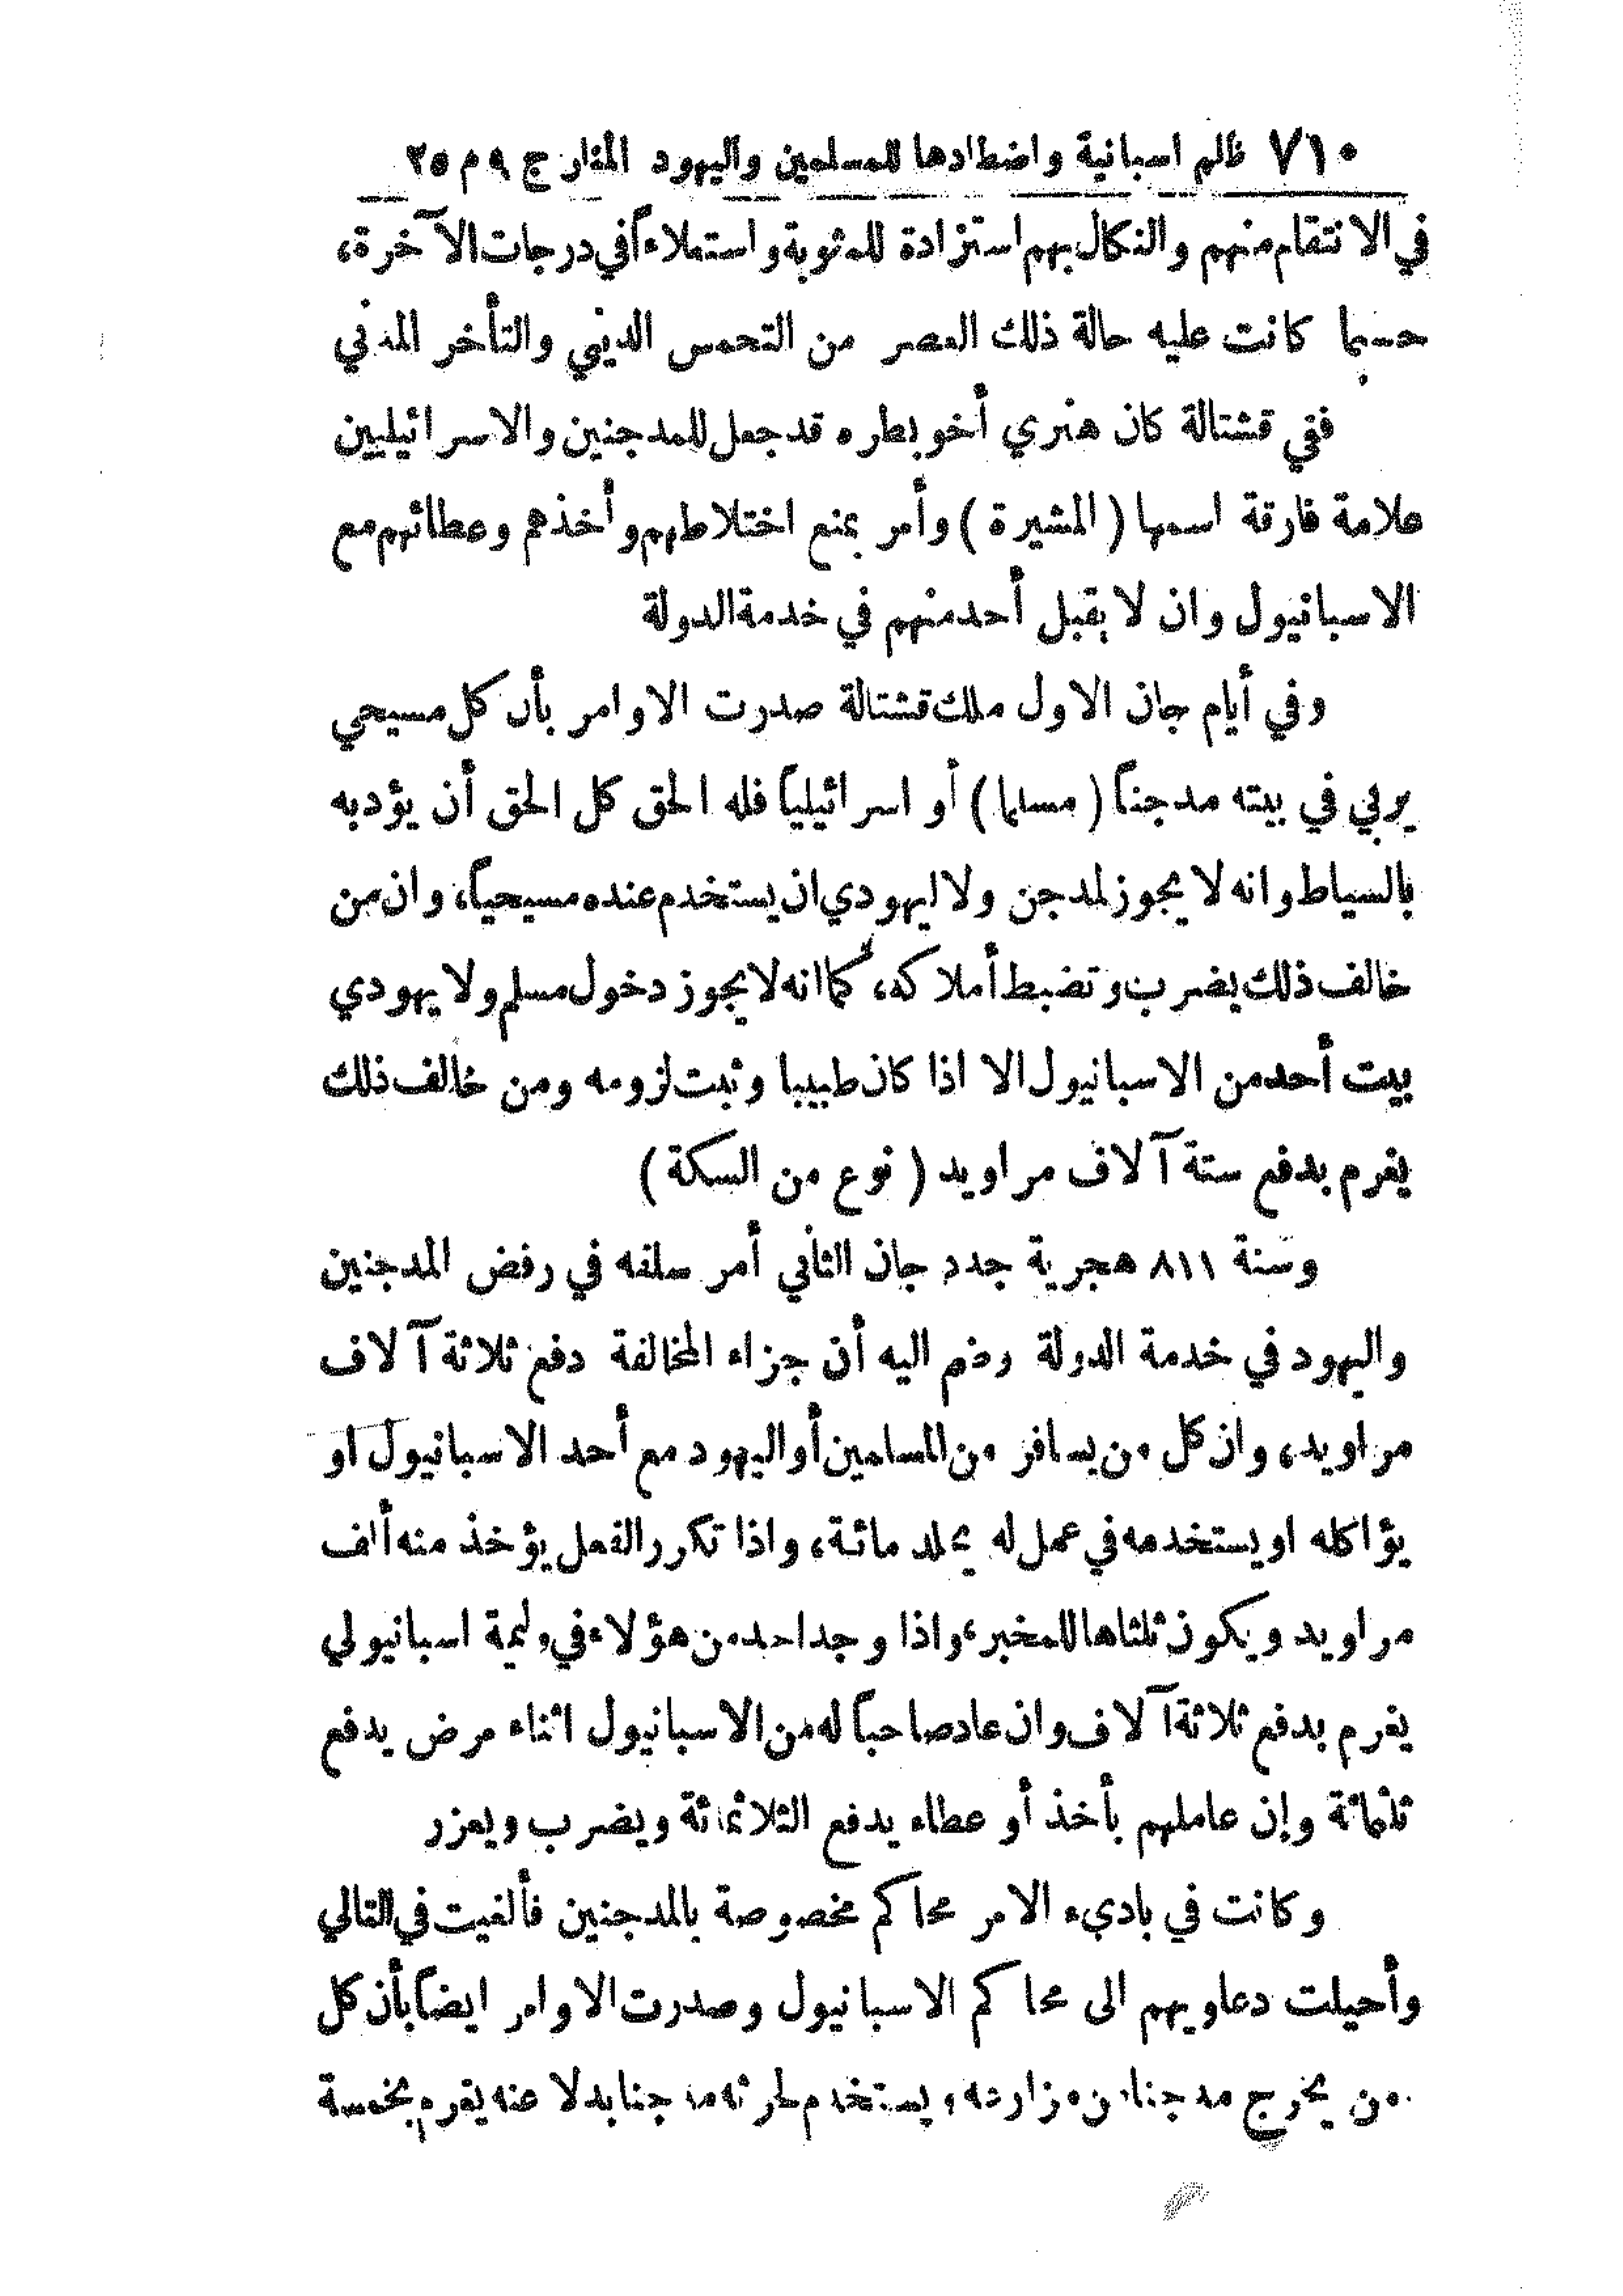 ٧١٠ ظلم اسبانية واضطادها للمسلمين واليهود المنار ج ٩ م ٢٥
في الانتقام منهم والنكال بهم استزادة للمثوبة واستعلاءاً في درجات الآخرة،
حسبما كانت عليه حالة ذلك العصر من التحمس الديني والتأخر المدني
ففي قشتالة كان هنري أخو بطره قد جعل للمدجنين والاسرائيليين
علامة فارقة اسمها (المشيرة) وأمر بمنع اختلاطهم وأخذهم وعطائهم مع
الاسبانيول وان لا يقبل أحد منهم في خدمة الدولة
وفي أيام جان الاول ملك قشتالة صدرت الاوامر بأن كل مسيحي
يربي في بيته مدجناً (مسلما) أو اسرائيلياً فله الحق كل الحق أن يؤدبه
بالسياط وانه لا يجوز لمدجن ولا ليهودي ان يستخدم عنده مسيحياً، وان من
خالف ذلك يضرب وتضبط أملاكه، كما انه لا يجوز دخول مسلم ولا يهودي
بيت أحد من الاسبانيول الا اذا كان طبيبا وثبت لزومه ومن خالف ذلك
يغرم بدفع ستة آلاف مراويد (نوع من السكة)
وسنة ٨١١ هجرية جدد جان الثاني أمر سلفه في رفض المدجنين
واليهود في خدمة الدولة وضم اليه أن جزاء المخالفة دفع ثلاثة آلاف
مراويد، وان كل من يسافر من المسلمين أو اليهود مع أحد الاسبانيول او
يؤاكله او يستخدمه في عمل له يجلد مائة، واذا تكرر الفعل يؤخذ منه ألف
مراويد ويكون ثلثاها للمخبر، واذا وجد احد من هؤلاء في وليمة اسبانيولي
يغرم بدفع ثلاثة آلاف وان عاد صاحباً له من الاسبانيول اثناء مرض يدفع
ثلثمائة وإن عاملهم بأخذ أو عطاء يدفع الثلاثمائة ويضرب ويعزر
وكانت في باديء الامر محاكم مخصوصة بالمدجنين فألغيت في التالي
وأحيلت دعاويهم الى محاكم الاسبانيول وصدرت الاوامر ايضاً بأن كل
من يخرج مدجنا من مزارعه ويستخدم لحرثه مدجنا بدلا عنه يغرم بخمسة